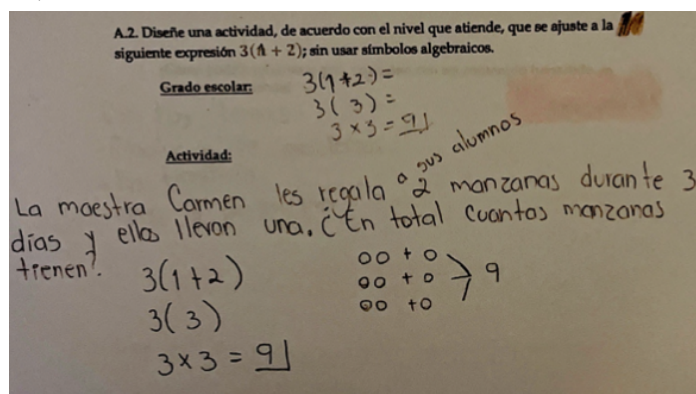 A.2. Diseñe una actividad, de acuerdo con el nivel que atiende, que se ajuste a la
siguiente expresión 3(1 + 2); sin usar símbolos algebraicos.
Grado escolar:
3(1+2)=
3( 3 ) =
3 × 3 = 9
Actividad:
La maestra Carmen les regala a sus alumnos 2 manzanas durante 3
días y ellos llevan una. ¿En total cuantas manzanas
tienen?
3(1+2)
3( 3 )
3 × 3 = 9
oo + o
oo + o
oo + o
9